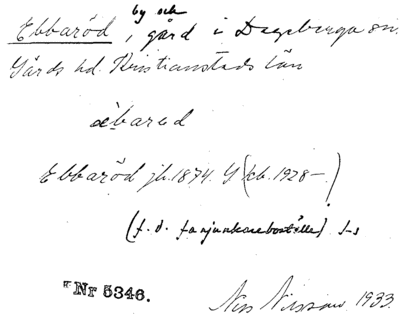 by och
Ebbaröd, gård i Degeberga sn.
Gärds hd. Kristianstads län
ä̀bared
Ebbaröd jb. 1874. G (kb. 1928–)
(f.d. fanjunkareboställe) J-s
Nr 5346.
Nils Nilsson 1933.